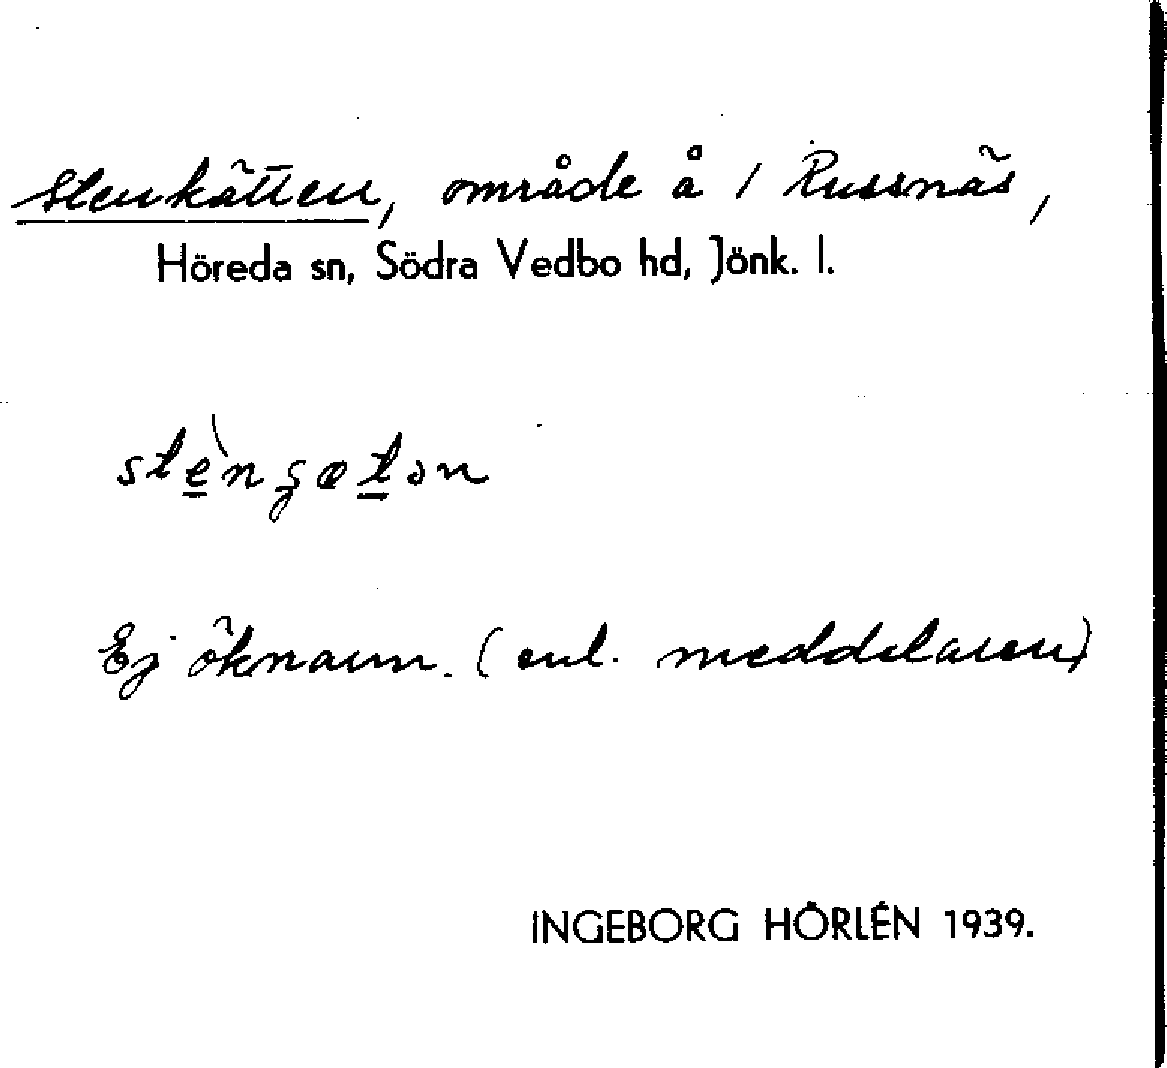 Stenkätten, område å 1 Russnäs,
Höreda sn, Södra Vedbo hd, Jönk. l.
Ej öknamn. (enl. meddelaren)
INGEBORG HÖRLÉN 1939.